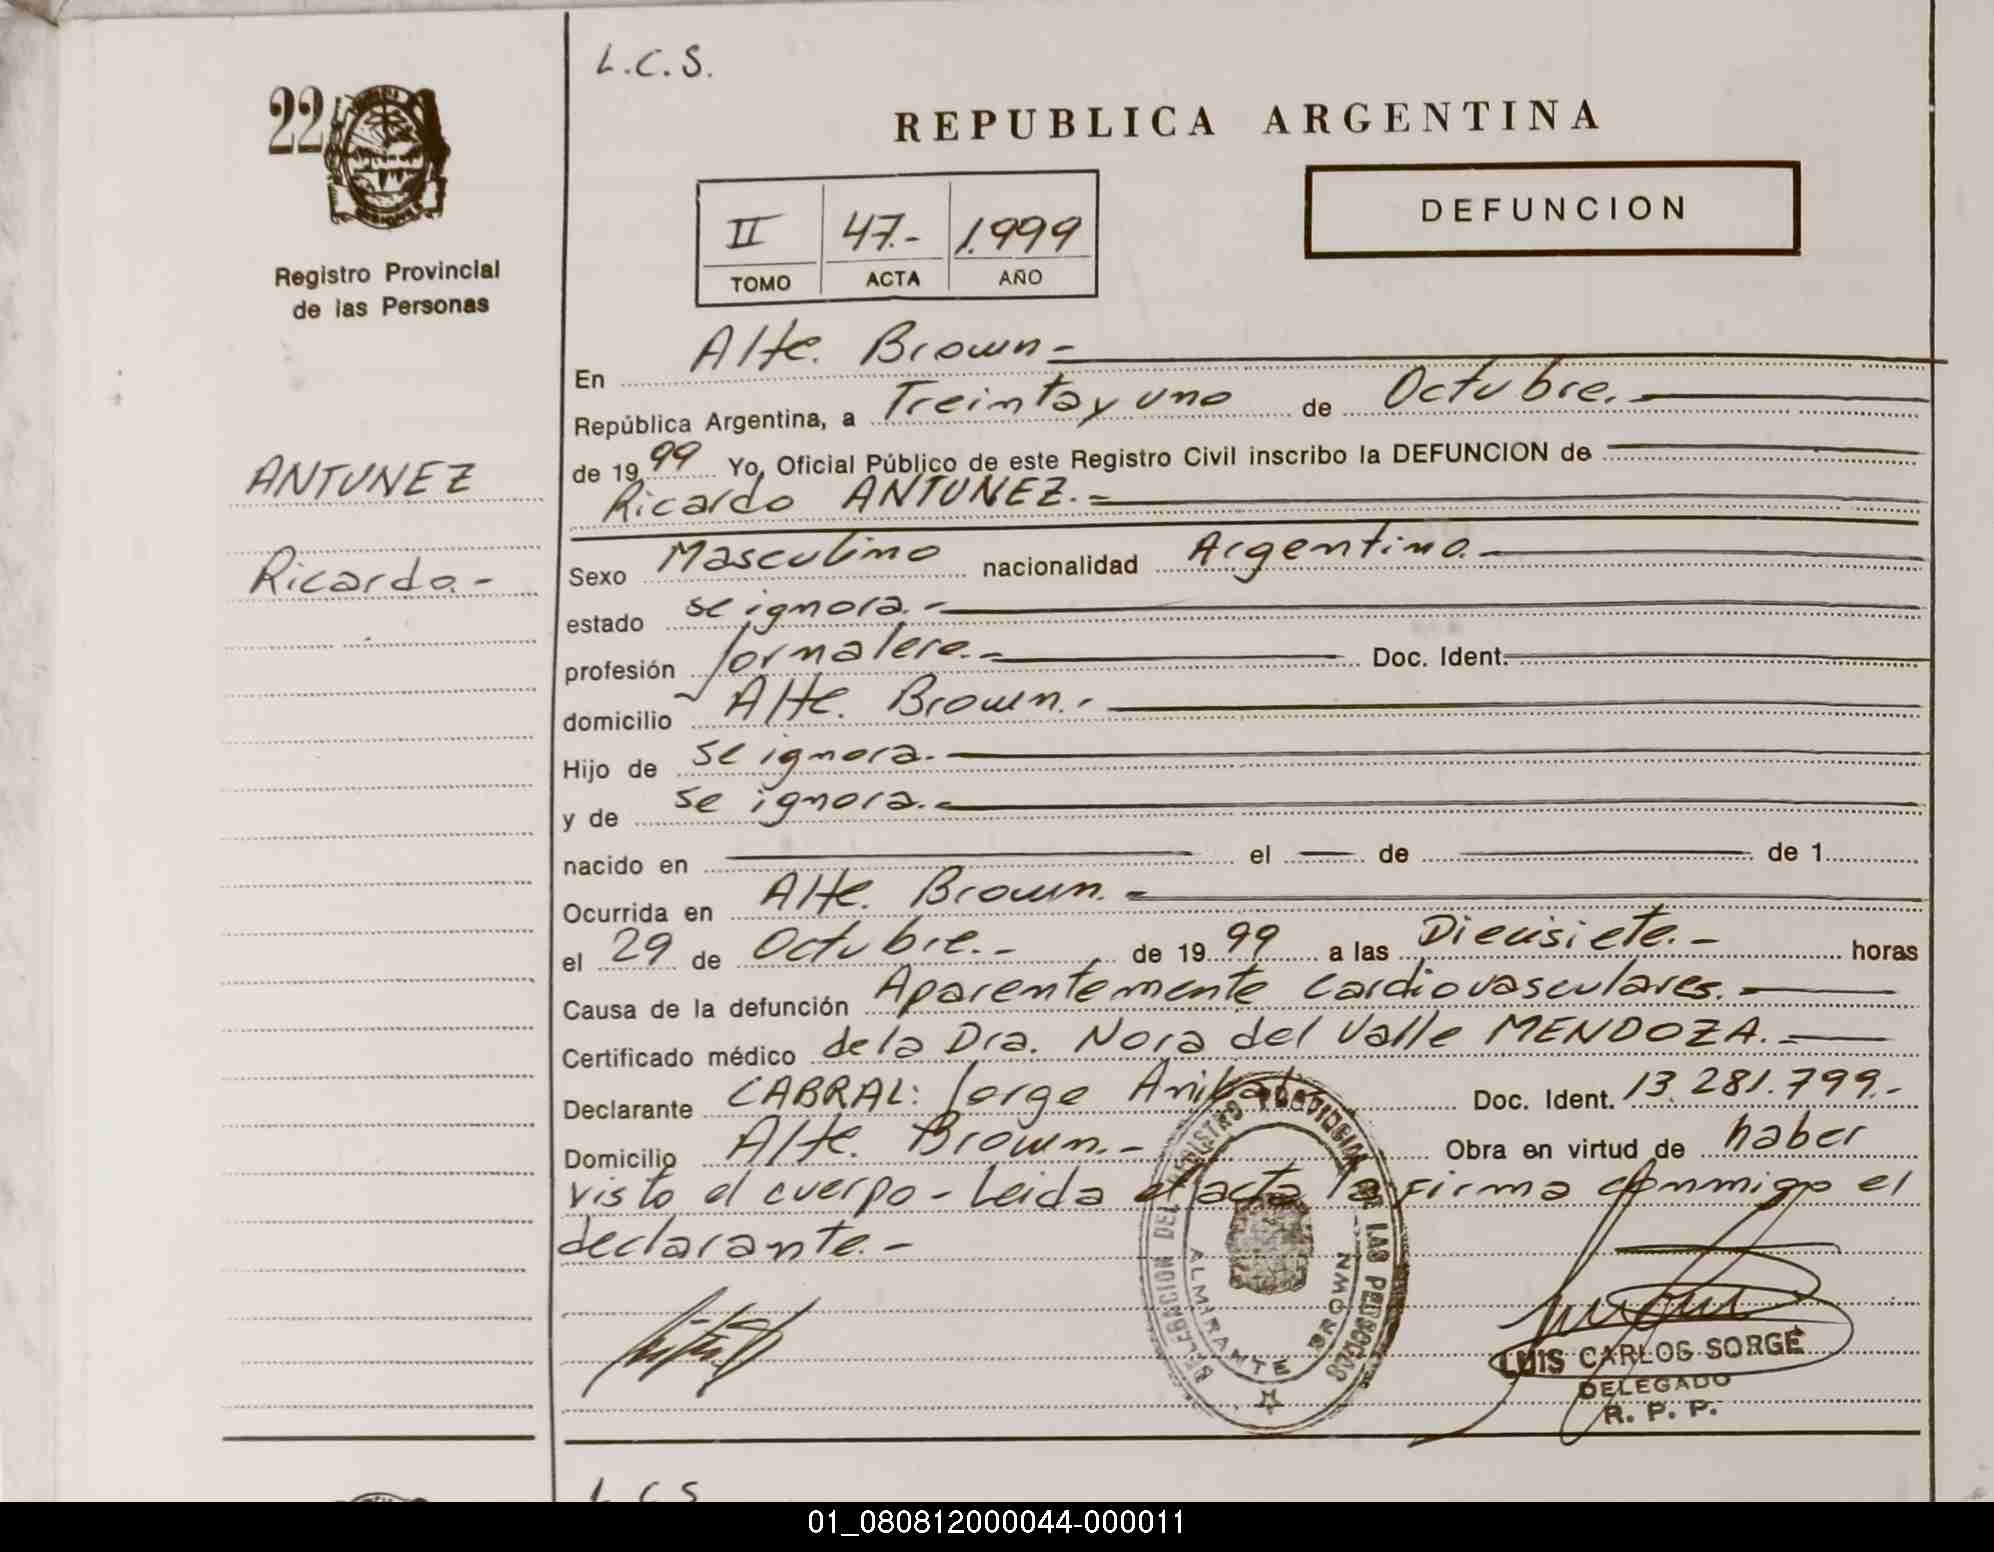 L.C.S.
22
REPUBLICA ARGENTINA
DEFUNCION
II 47.- 1.999
TOMO ACTA AÑO
Registro Provincial
de las Personas
ANTUNEZ
Ricardo.-
En Alte. Brown-
República Argentina, a Treinta y uno de Octubre.
de 1999 Yo, Oficial Público de este Registro Civil inscribo la DEFUNCION de
Ricardo ANTUNEZ.-
Sexo Masculino nacionalidad Argentina.
estado se ignora.-
profesión Jornalero.- Doc. Ident.
domicilio Alte. Brown.-
Hijo de se ignora.
y de se ignora.
nacido en el de de 1
Ocurrida en Alte. Brown.
el 29 de Octubre.- de 1999 a las Diecisiete.- horas
Causa de la defunción Aparentemente cardiovasculares.
Certificado médico de la Dra. Nora del Valle MENDOZA.
Declarante CABRAL: Jorge Anibal Doc. Ident. 13.281.799.-
Domicilio Alte. Brown.- Obra en virtud de haber
visto el cuerpo - Leida el acta, la firma conmigo el
declarante.-
DELEGACION DEL REGISTRO PROVINCIAL DE LAS PERSONAS
ALMIRANTE BROWN
LUIS CARLOS SORGE
DELEGADO
R. P. P.
L C S
01_080812000044-000011